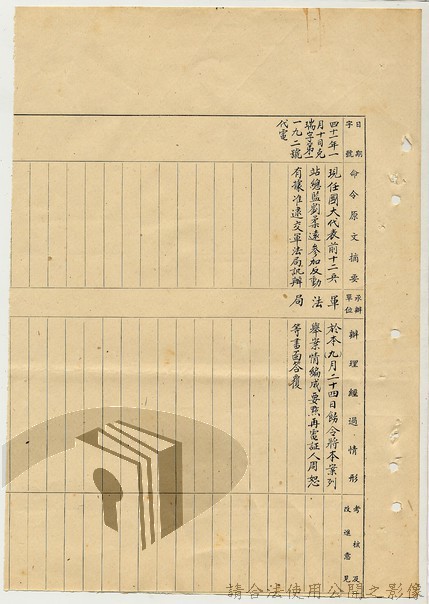 日期
字號
命令原文摘要
承辦
單位
辦理經過情形
考核及
改進意見
四十一年一
月十日克
瑞字第
一九二號
代電
現任國大代表前十二兵
站總監劉柔遠參加反動
有據准逮交軍法局訊辦
軍法局
於本九月二十四日飭令將本案列
舉案情編成要點再電証人周恕
等書面答覆
請合法使用公開之影像